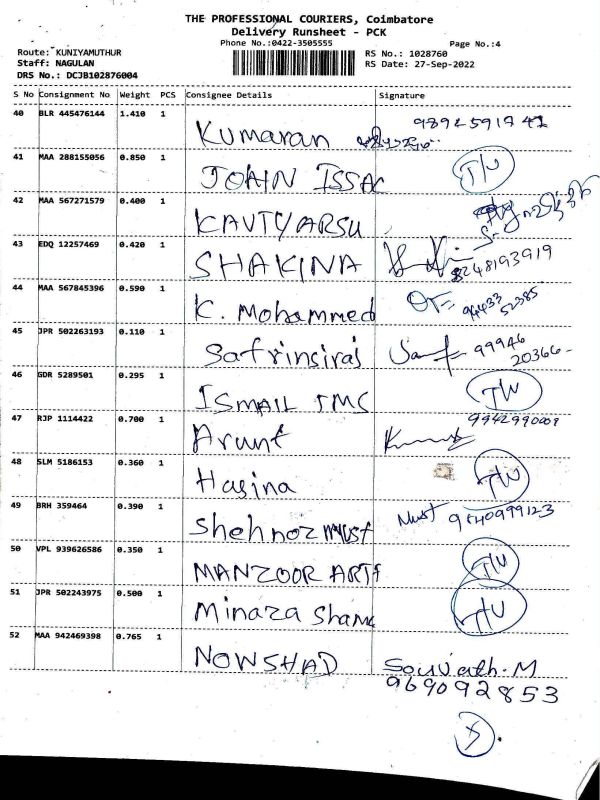 THE PROFESSIONAL COURIERS, Coimbatore
Delivery Runsheet - PCK
Phone No.:0422-3505555
Page No.:4
Route: KUNIYAMUTHUR
Staff: NAGULAN
DRS No.: DCJB102876004
RS No.: 1028760
RS Date: 27-Sep-2022
S No Consignment No Weight PCS Consignee Details Signature
40 BLR 445476144 1.410 1 Kumaran
41 MAA 288155056 0.850 1 JOHN ISSAC T/U
42 MAA 567271579 0.400 1
43 EDQ 12257469 0.420 1 SHAKINA 8248193919
44 MAA 567845396 0.590 1 K. Mohammed 94433 52385
45 JPR 502263193 0.110 1 Safrinsiraj 99946
20366
46 GDR 5289501 0.295 1 ISMAIL TMS T/U
47 RJP 1114422 0.700 1 Arunt
48 SLM 5186153 0.360 1 Hasina T/U
49 BRH 359464 0.390 1 Shehnoz Must 9640999123
50 VPL 939626586 0.350 1 MANZOOR T/U
51 JPR 502243975 0.500 1 Minaza Sham T/U
52 MAA 942469398 0.765 1 NOWSHAD
969092853